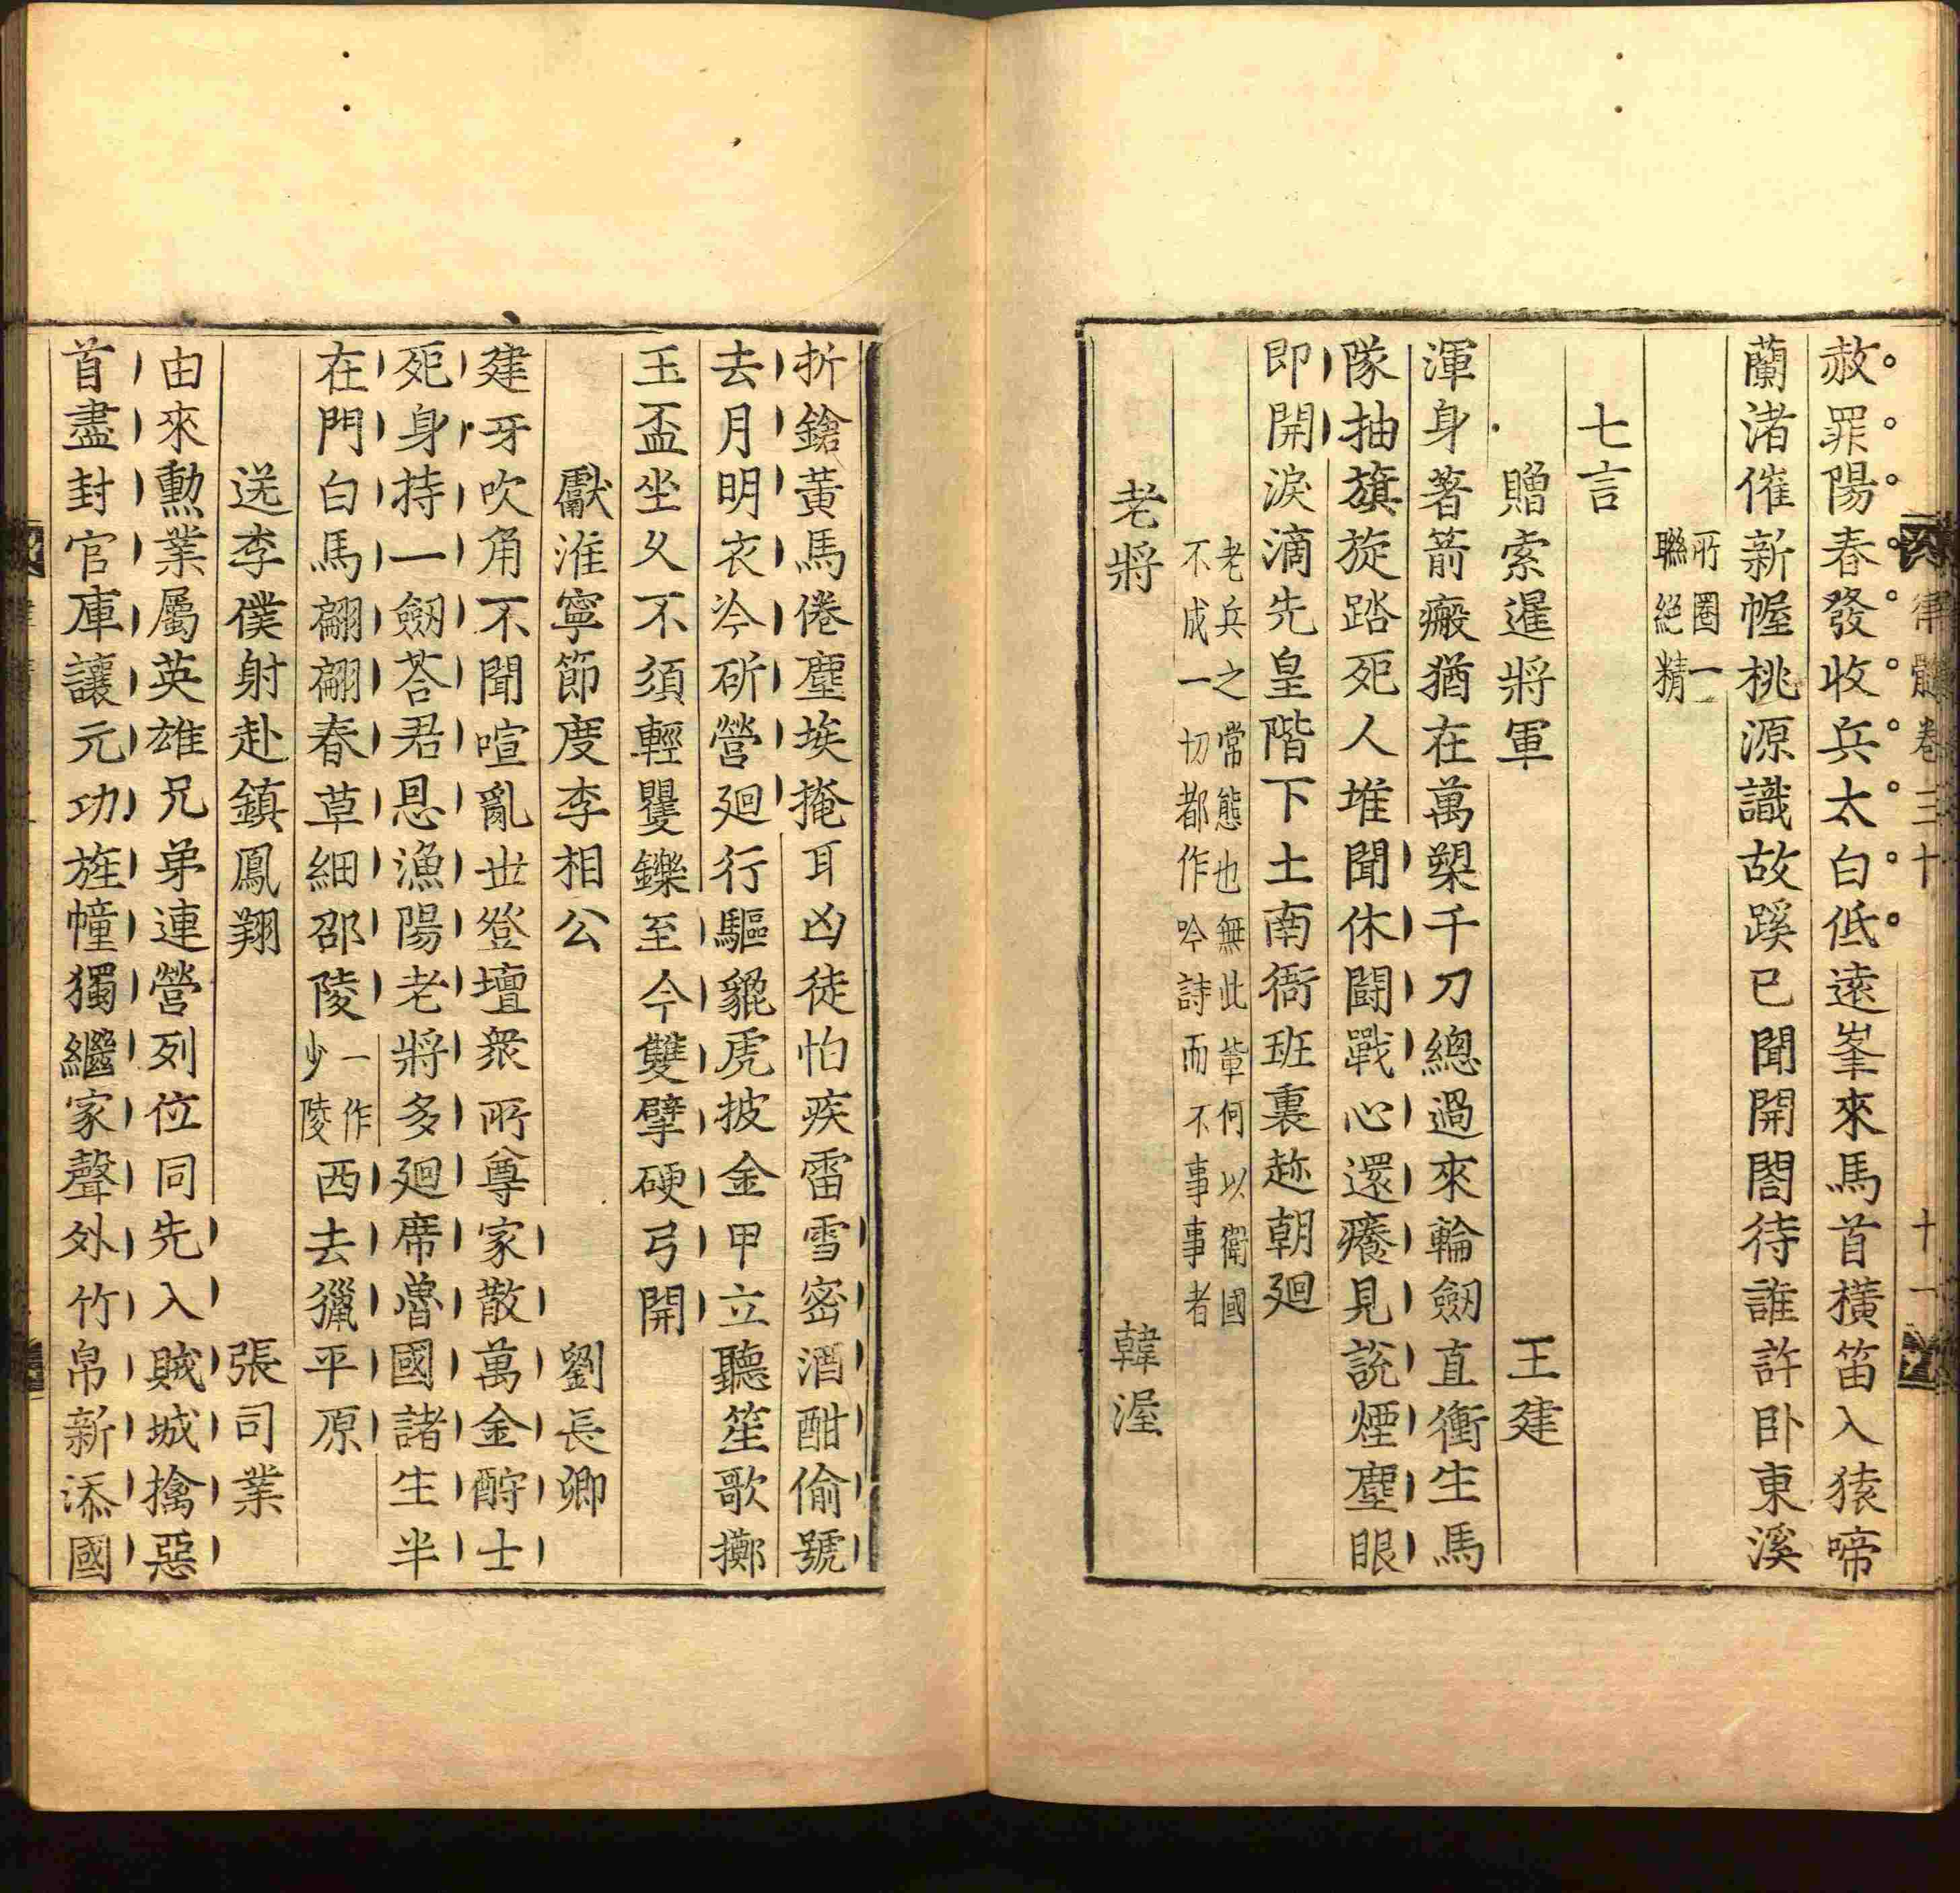 赦罪陽春發收兵太白低遠峯來馬首橫笛入猿啼
蘭渚催新幄桃源識故蹊已聞開閤待誰許卧東溪
所圈一
聯絕精
七言
贈索暹將軍 王建
渾身著箭瘢猶在萬槊千刀總過來輪劒直衝生馬
隊抽旗旋踏死人堆聞休鬪戰心還癢見說煙塵眼
即開淚滴先皇階下土南衙班裏趂朝廻
老兵之常態也無此輩何以衛國
不成一切都作吟詩而不事事者
老將 韓渥
律髓卷三十 十一
折鎗黃馬倦塵埃掩耳凶徒怕疾雷雪密酒酣偷號
去月明衣冷斫營廻行驅貔虎披金甲立聽笙歌擲
玉盃坐久不須輕矍鑠至今雙擘硬弓開
獻淮寧節度李相公 劉長卿
建牙吹角不聞喧亂丗登壇衆所尊家散萬金酧士
死身持一劒荅君恩漁陽老將多廻席魯國諸生半
在門白馬翩翩春草細邵陵一作少陵西去獵平原
送李僕射赴鎮鳳翔 張司業
由來勲業屬英雄兄弟連營列位同先入賊城擒惡
首盡封官庫讓元功旌幢獨繼家聲外竹帛新添國